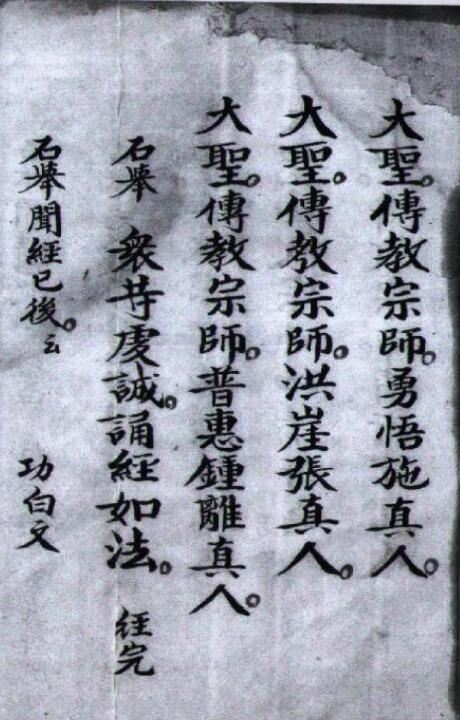 大聖。傳教宗師。勇悟施真人。
大聖。傳教宗師。洪崖張真人。
大聖。傳教宗師。普惠鍾離真人。
右舉 衆䓁虔誠。誦經如法。 経完
右舉聞經已後。云 功白文